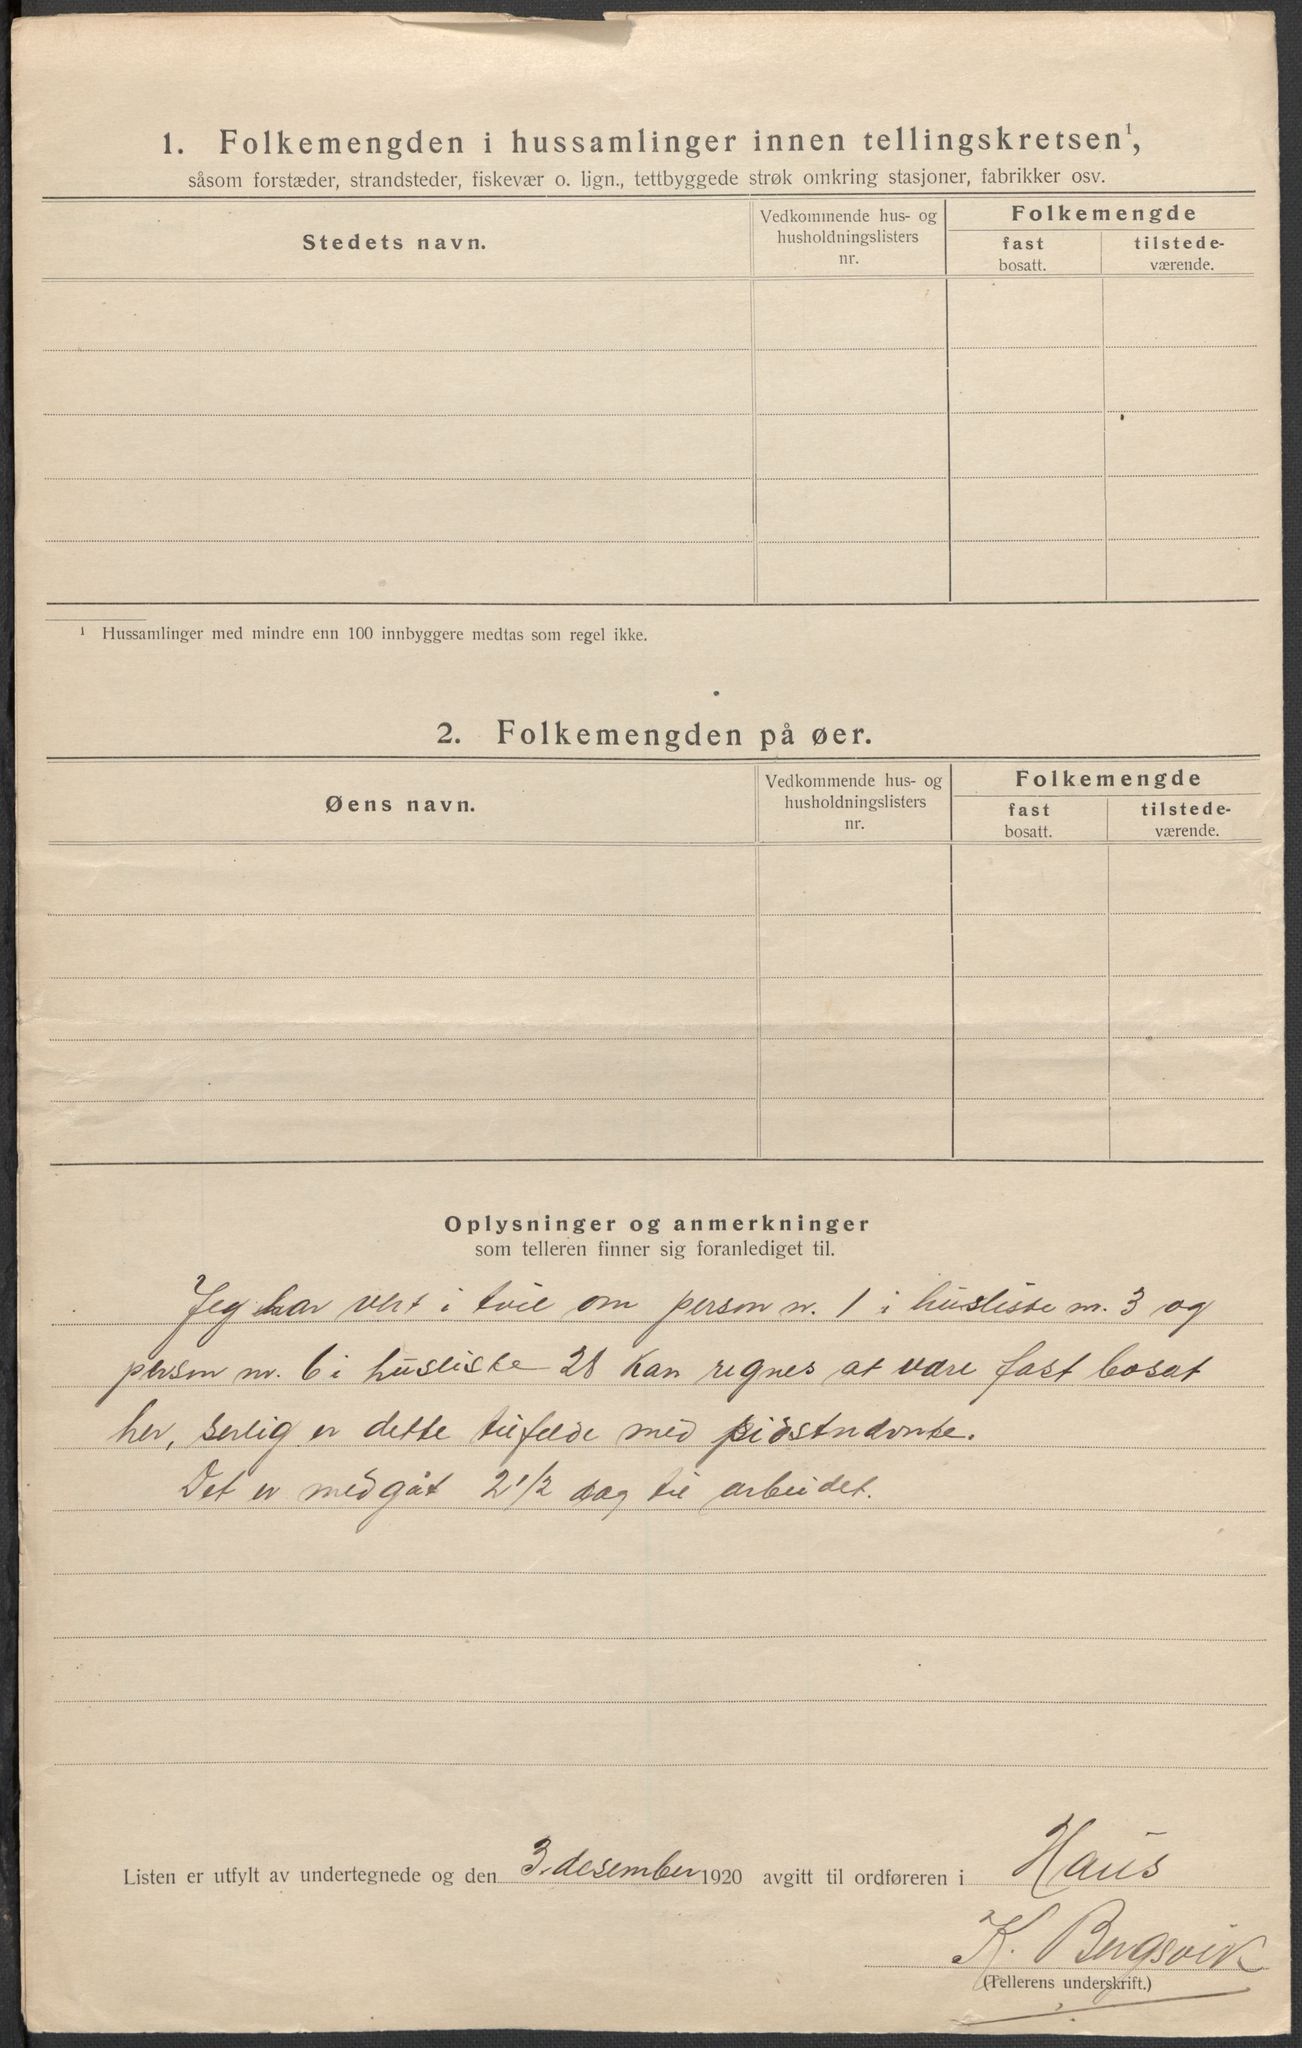 1. Folkemengden i hussamlinger innen tellingskretsen¹,
såsom forstæder, strandsteder, fiskevær o. lign., tettbyggede strøk omkring stasjoner, fabrikker osv.
Stedets navn.
Vedkommende hus- og
husholdningslisters
nr.
Folkemengde
fast
bosatt.
tilstede-
værende.
¹ Hussamlinger med mindre enn 100 innbyggere medtas som regel ikke.
2. Folkemengden på øer.
Øens navn.
Vedkommende hus- og
husholdningslisters
nr.
Folkemengde
fast
bosatt.
tilstede-
værende.
Oplysninger og anmerkninger
som telleren finner sig foranlediget til.
Jeg har vert i tvil om person nr. 1 i husliste nr. 3 og
person nr. 6 i husliste 28 kan regnes at være fast bosat
her, serlig er dette tilfelde med sidstnevnte.
Det er medgåt 2 1/2 dag til arbeidet.
Listen er utfylt av undertegnede og den 3. desember 1920 avgitt til ordføreren i Haus
K. Bergsvik
(Tellerens underskrift.)